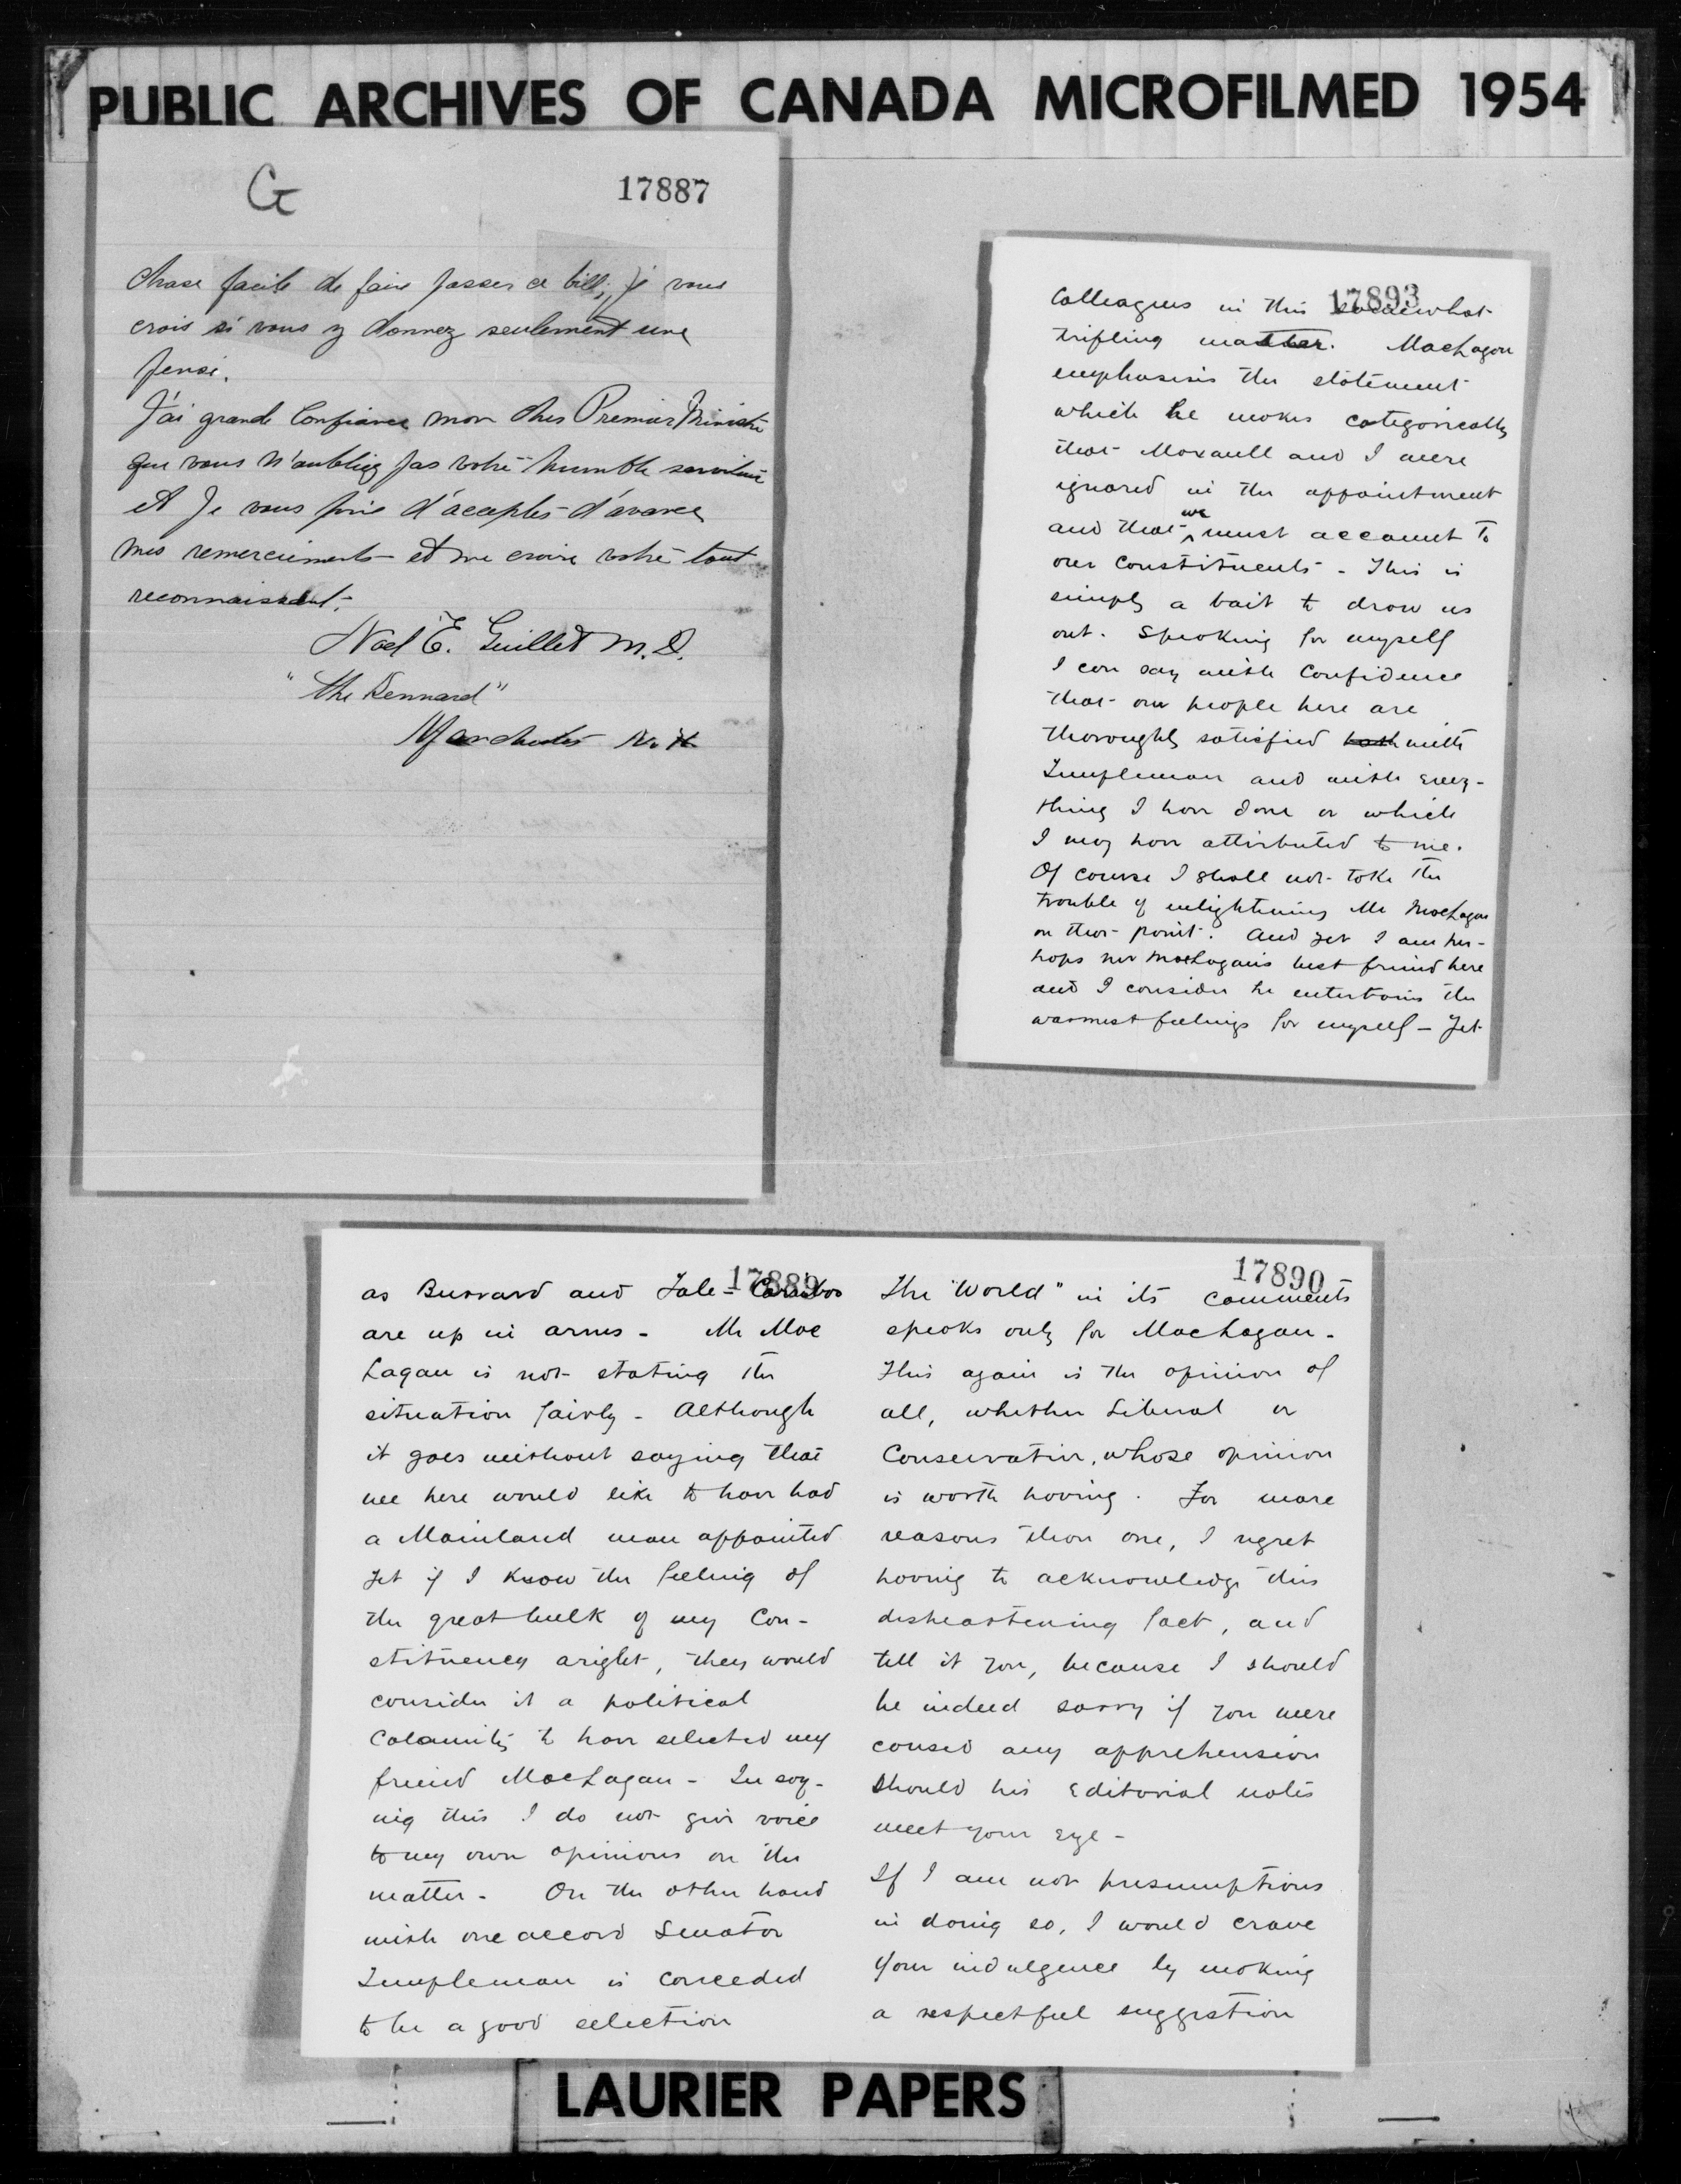 PUBLIC ARCHIVES OF CANADA MICROFILMED 1954
G
17887
chose facile de faire passer ce bill, je vous
crois si vous y donnez seulement une
pensé.
J'ai grande Confiance mon cher Premier Ministre
que vous n'oubliez pas votre humble serviteur
et Je vous prie d'accepter d'avance
mes remerciments et me croire votre tout
reconnaissant.
Noel E. Guillet M.D.
"The Kennard"
Manchester N.H.
17893
Colleagues in this somewhat
trifling matter. MacLagan
emphasisis the statement
which he makes categorically
that Maxwell and I were
ignored in the appointment
and that we must account to
our constituents - This is
simply a bait to draw us
out. Speaking for myself
I can say with confidence
that our people here are
thoroughly satisfied with
Templeman and with every-
thing I have done or which
I may have attributed to me.
Of course I shall not take the
trouble of enlightening Mr MacLagan
on that point. And yet I am per-
haps Mr MacLagan's best friend here
and I consider he entertains the
warmest feelings for myself - Yet
17889
as Burrard and Yale-Cariboo
are up in arms - Mr Mac
Lagan is not stating the
situation fairly - Although
it goes without saying that
we here would like to have had
a Mainland man appointed
yet if I know the feeling of
the great bulk of my Con-
stituency aright, they would
consider it a political
calamity to have selected my
friend MacLagan - In say-
ing this I do not give voice
to my own opinions on the
matter - On the other hand
with one accord Senator
Templeman is conceded
to be a good selection
17890
The "World" in its comments
speaks only for MacLagan -
This again is the opinion of
all, whether Liberal or
Conservative, whose opinion
is worth having. For more
reasons than one, I regret
having to acknowledge this
disheartening fact, and
tell it you, because I should
be indeed sorry if you were
caused any apprehension
should his Editorial notes
meet your eye -
If I am not presumptious
in doing so, I would crave
your indulgence by making
a respectful suggestion
LAURIER PAPERS